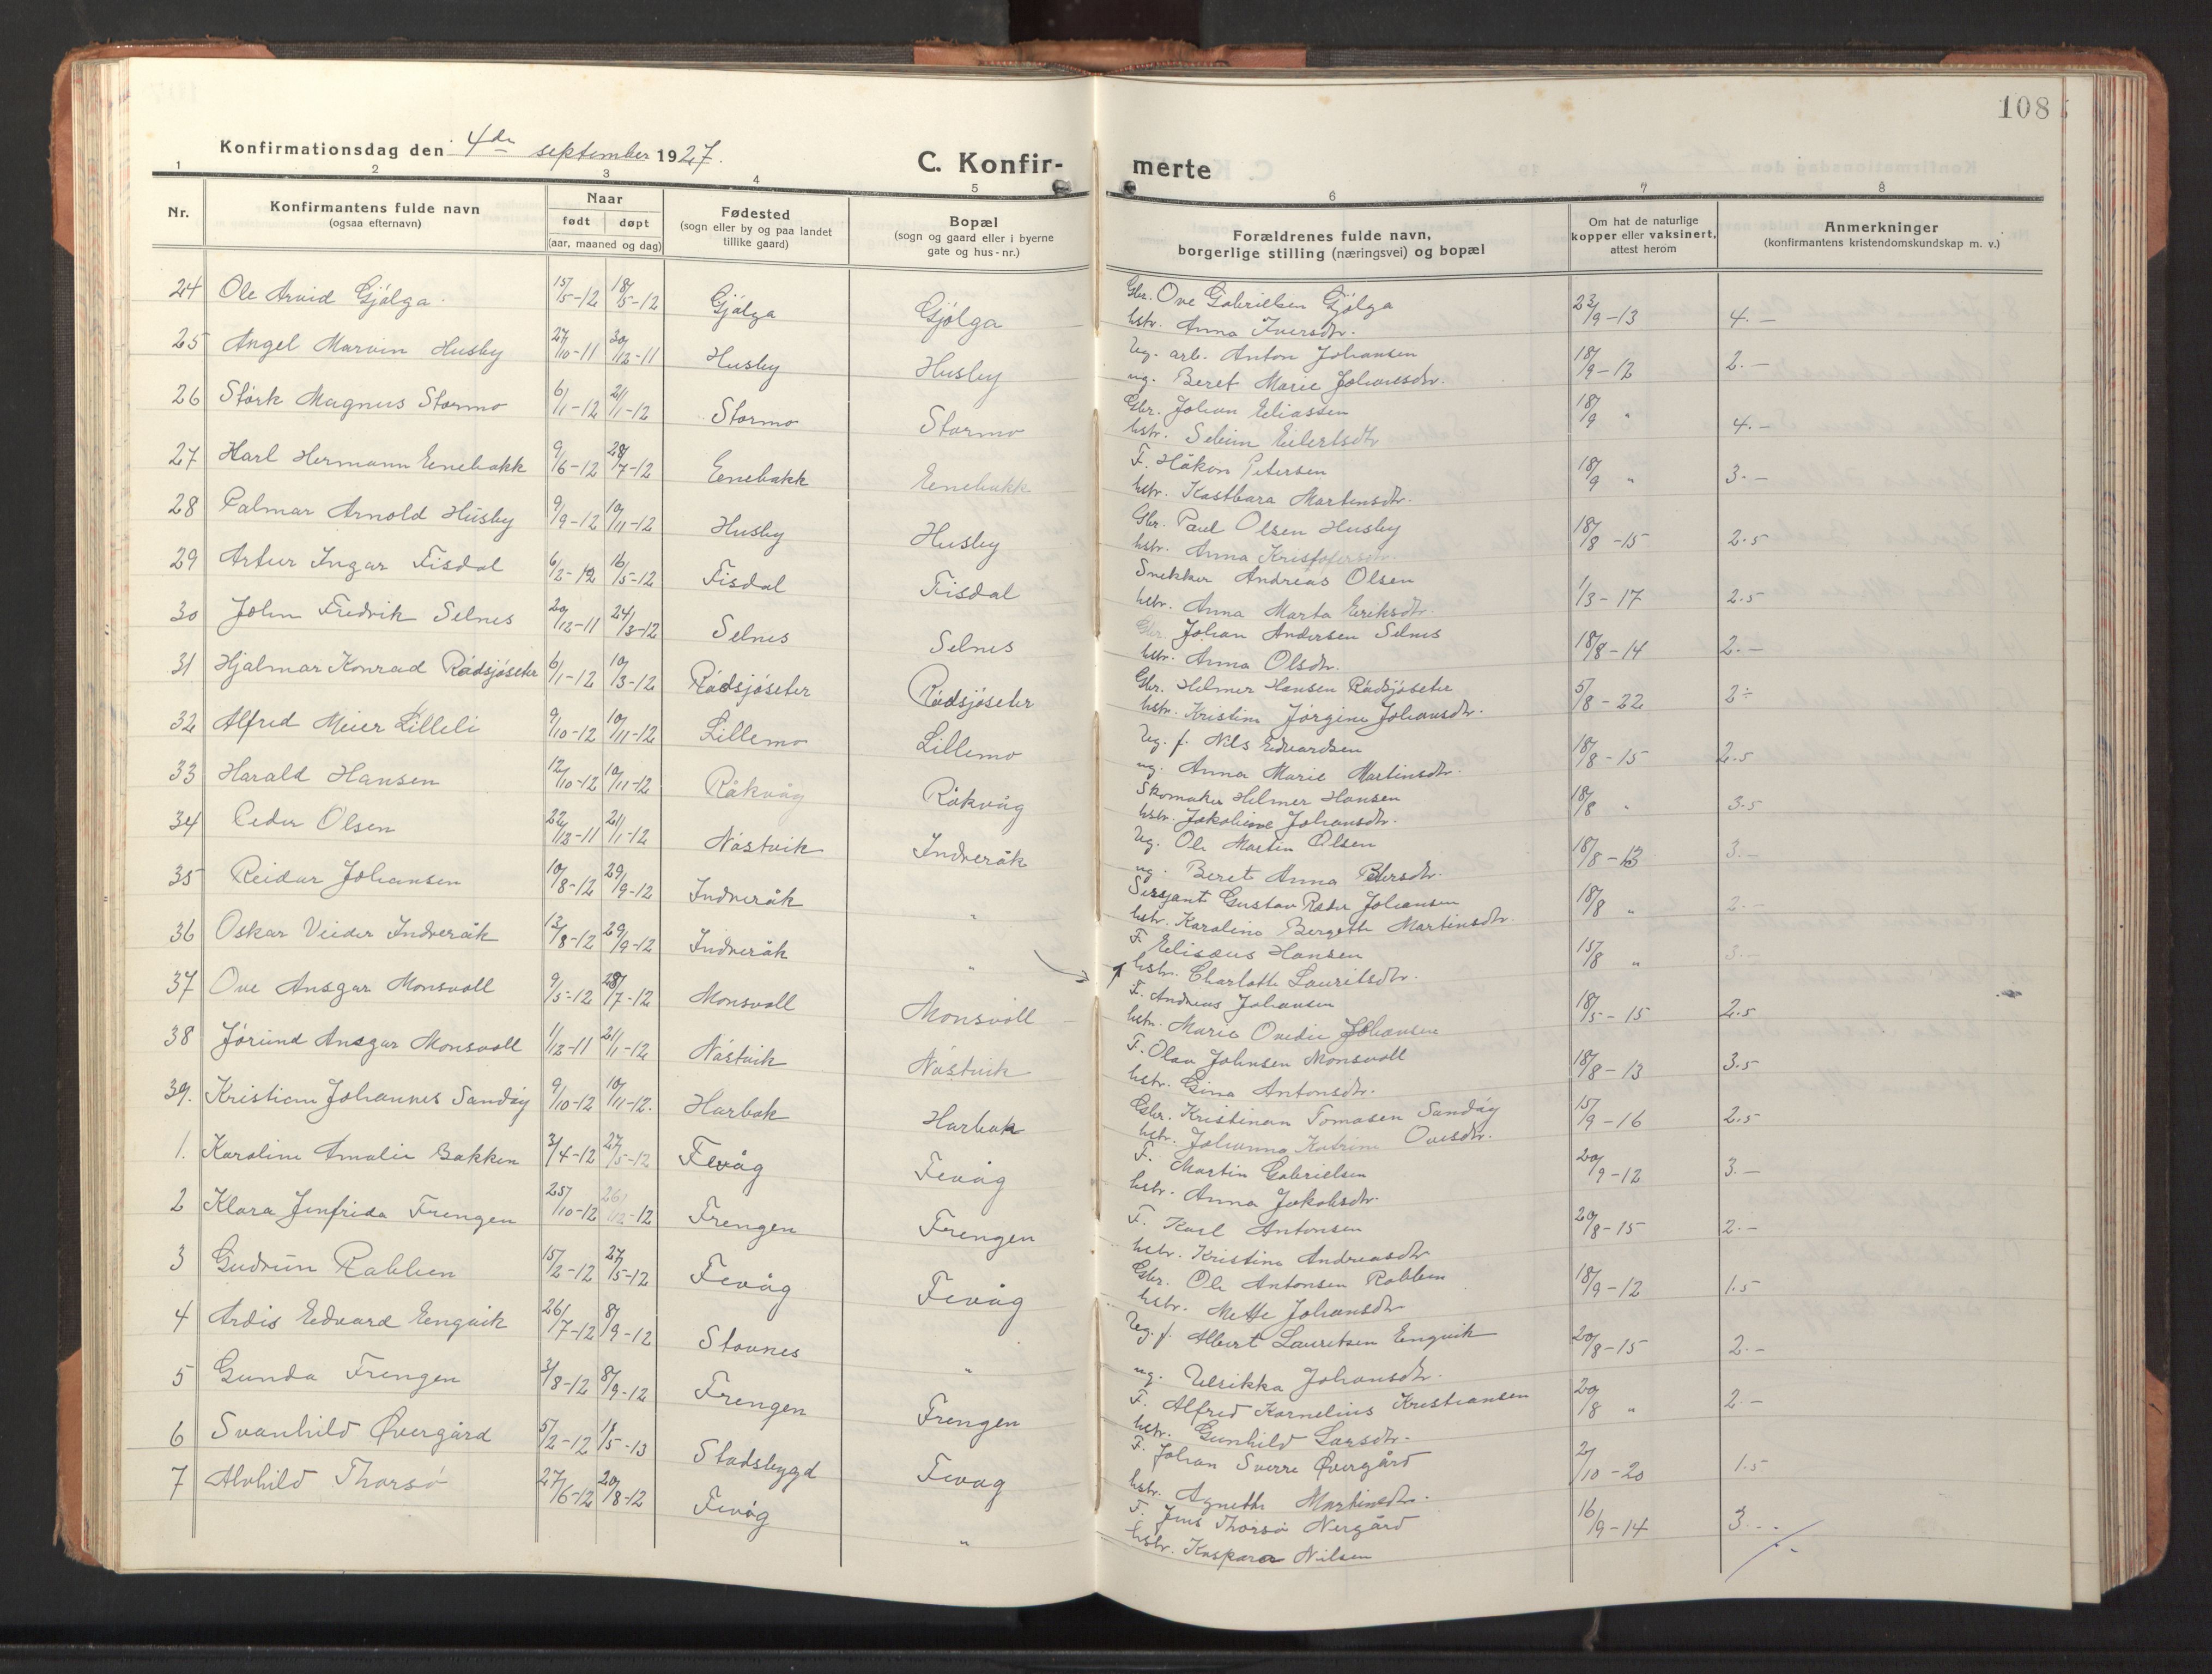 108
Konfirmationsdag den 4de september 1927.
C. Konfir-merte
1 2 3 4 5 6 7 8
Nr.
Konfirmantens fulde navn
(ogsaa efternavn)
Naar
født døpt
(aar, maaned og dag)
Fødested
(sogn eller by og paa landet
tillike gaard)
Bopæl
(sogn og gaard eller i byerne
gate og hus-nr.)
Forældrenes fulde navn,
borgerlige stilling (næringsvei) og bopæl
Om hat de naturlige
kopper eller vaksinert,
attest herom
Anmerkninger
(konfirmantens kristendomskundskap m. v.)
24 Ole Arvid Gjölga 15/5-12 18/5-12 Gjölga Gjölga Gbr. Ove Gabrielsen Gjölga 23/9-13 4.-
hstr. Anna Iversdtr.
25 Angel Marvin Husby 27/10-11 30/12-11 Husby Husby Ug. arb. Anton Johansen 18/9-12 2.-
ug. Beret Marie Johansdtr.
26 Störk Magnus Stormo 6/1-12 21/1-12 Stormo Stormo Gbr. Johan Eliassen 18/9 " 4.-
hstr. Selium Eilertsdtr
27 Karl Hermann Enebakk 9/6-12 28/7-12 Enebakk Enebakk F. Håkon Petersen 18/9 " 3.-
hstr. Kastbara Martinsdtr.
28 Palmar Arnold Husby 9/9-12 10/11-12 Husby Husby Gbr. Paul Olsen Husby 18/8-15 2.5
hstr. Anna Kristofersdtr.
29 Artur Ingar Fisdal 6/2-12 16/5-12 Fisdal Fisdal Snekker Andreas Olsen 1/3-17 2.5
hstr. Anna Marta Eriksdtr.
30 John Fredrik Selnes 20/12-11 24/3-12 Selnes Selnes Gbr. Johan Andersen Selnes 18/8-14 2.-
hstr. Anna Olsdtr.
31 Hjalmar Konrad Rödsjöseter 6/1-12 10/3-12 Rödsjöseter Rödsjöseter Gbr. Helmer Hansen Rödsjöseter 5/8-22 2÷
hstr. Kristine Jörgine Johansdtr.
32 Alfred Meier Lilleli 9/10-12 10/11-12 Lillemo Lillemo Ug. f. Nils Edvardsen 18/8-15 2.5
ug. Anna Marie Martinsdtr.
33 Harald Hansen 12/10-12 10/11-12 Råkvåg Råkvåg Skomaker Helmer Hansen 18/8 " 3.5
hstr. Jakobine Johansdtr.
34 Peder Olsen 22/12-11 21/1-12 Nöstvik Indreråk Ug. Ole Martin Olsen 18/8-13 3.-
ug. Beret Anna Petersdtr.
35 Reidar Johansen 10/8-12 29/9-12 Indreråk " Sersjant Gustav Peder Johansen 18/8 " 2.-
hstr. Karoline Bergette Martinsdtr.
36 Oskar Veider Indreråk 13/8-12 29/9-12 Indreråk " F. Eliseus Hansen 15/8 " 3.-
hstr. Charlotte Lauritsdtr.
37 Ove Ansgar Monsvoll 9/5-12 28/7-12 Monsvoll Monsvoll F. Andreas Johansen 18/5-15 2.5
hstr. Marie Ovedie Johansen
38 Jörund Ansgar Monsvoll 1/12-11 21/1-12 Nöstvik Nöstvik F. Olav Johnsen Monsvoll 18/8-13 3.5
hstr. Gina Antonsdtr.
39. Kristian Johannes Sandöy 9/10-12 10/11-12. Harbak Harbak Gbr. Kristinan Tomasen Sandöy 15/9-16 2.5
hstr. Johanna Katrine Ovesdtr.
1. Karoline Amalie Bakken 3/4-12 27/5-12 Fevåg Fevåg F. Martin Gabrielsen 20/9-12 3.-
hstr. Anna Jakobsdtr.
2 Klara Jenfrida Frengen 25/10-12 26/12-12 Frengen Frengen F. Karl Antonsen 20/8-15 2.-
hstr. Kristine Andreasdtr
3 Gudrun Rabben 15/2-12 27/5-12 Fevåg Fevåg Gbr. Ole Antonsen Rabben 18/9-12 1.5
hstr. Mette Johansdtr
4 Ardis Edvard Engvik 26/7-12 8/9-12 Stovnes " Ug. f. Albert Lauritsen Engvik 20/8-15 2.-
ug. Ulrikka Johansdtr.
5 Gunda Frengen 3/8-12 8/9-12 Frengen Frengen F. Alfred Kornelius Kristiansen 20/8 " 2.-
hstr. Gunhild Larsdtr.
6 Svanhild Övergård 5/2-12 1/5-13 Stadsbygd Fevåg F. Johan Sverre Övergård 2/10-20 1.5
hstr. Agnethe Martinsdtr.
7 Alvhild Thorsö 27/6-12 20/8-12 Fevåg " F. Jens Thorsö Nergård 16/9-14 3.-
hstr. Kaspara Nilsen